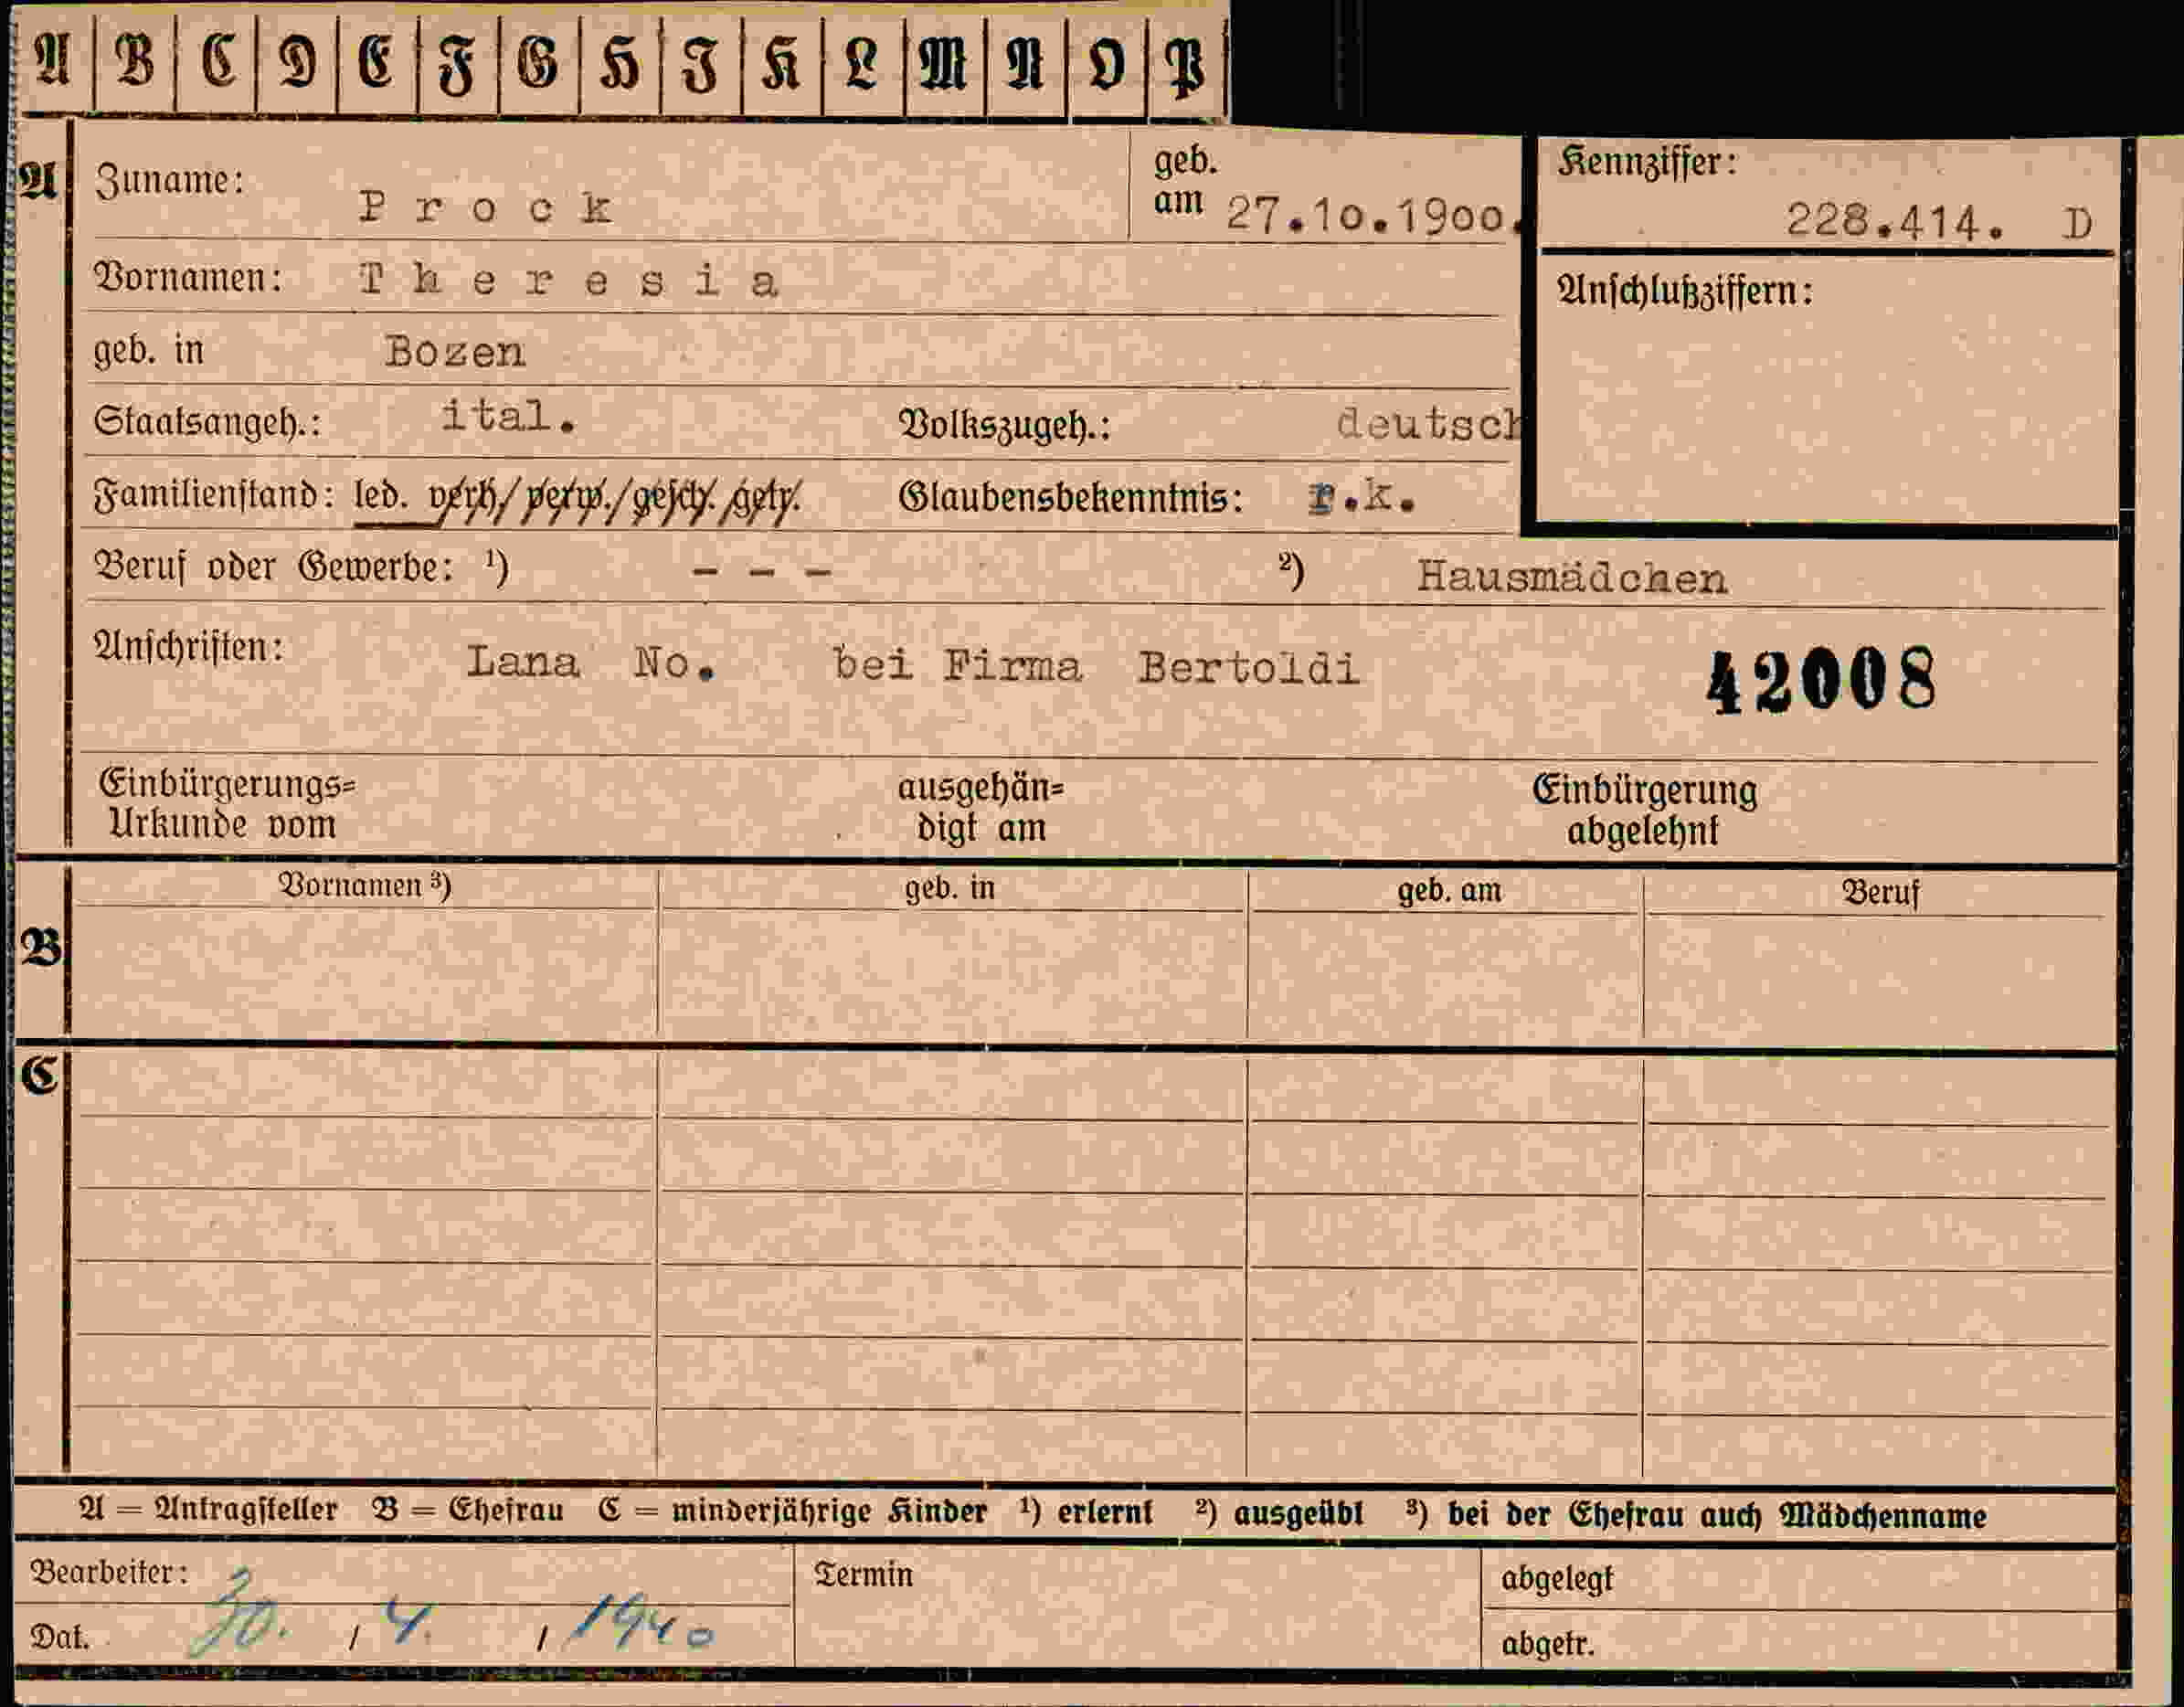 A B C D E F G H I K L M N O P
A Zuname: Prock geb. am 27.10.1900. Kennziffer: 228.414. D
Vornamen: Theresia Anschlußziffern:
geb. in Bozen
Staatsangeh.: ital. Volkszugeh.: deutsch
Familienstand: led. verh./verw./gesch./getr. Glaubensbekenntnis: r.k.
Beruf oder Gewerbe: ¹) - - - ²) Hausmädchen
Anschriften: Lana No. bei Firma Bertoldi 42008
Einbürgerungs= ausgehän= Einbürgerung
Urkunde vom digt am abgelehnt
Vornamen ³) geb. in geb. am Beruf
B
C
A = Antragsteller B = Ehefrau C = minderjährige Kinder ¹) erlernt ²) ausgeübt ³) bei der Ehefrau auch Mädchenname
Bearbeiter: Termin abgelegt
Dat. 30. / 4. / 1940 abgetr.